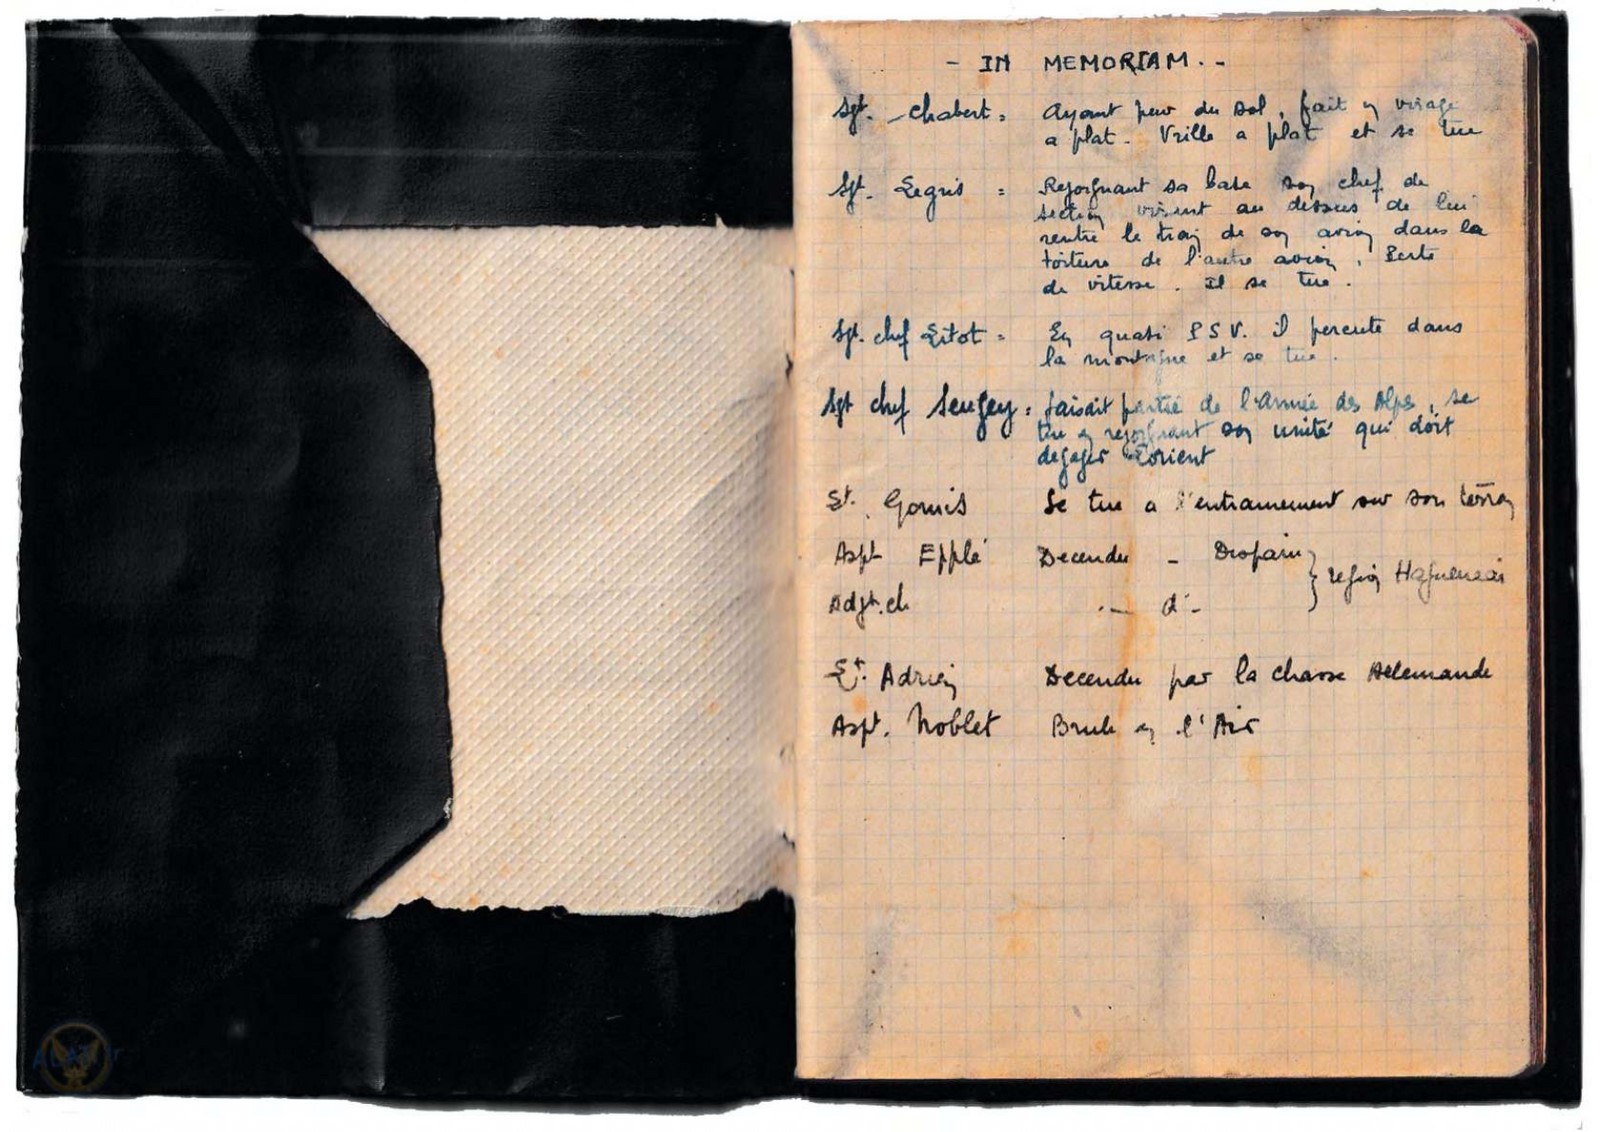 - IN MEMORIAM. -
Sgt. Chabert = Ayant peur du sol, fait en virage
a plat. Vrille a plat et se tue
Sgt. Legris = Rejoignant sa base son chef de
section virent au dessus de lui
rentre le train de son avion dans la
toiture de l'autre avion. Perte
de vitesse. Il se tue.
Sgt. chef Litot = En quasi P S V. il percute dans
la montagne et se tue.
Sgt chef Seugey = faisait partie de l'Armée des Alpes, se
tue en rejoignant son unité qui doit
degager Lorient
Lt. Gomis Se tue a l'entrainement sur son terrain
Aspt Epplé Decendu - } region Haguenau
Adjt. ch - d° -
Lt. Adrien Decendu par la chasse Allemande
Aspt. Noblet Brule en l'Air